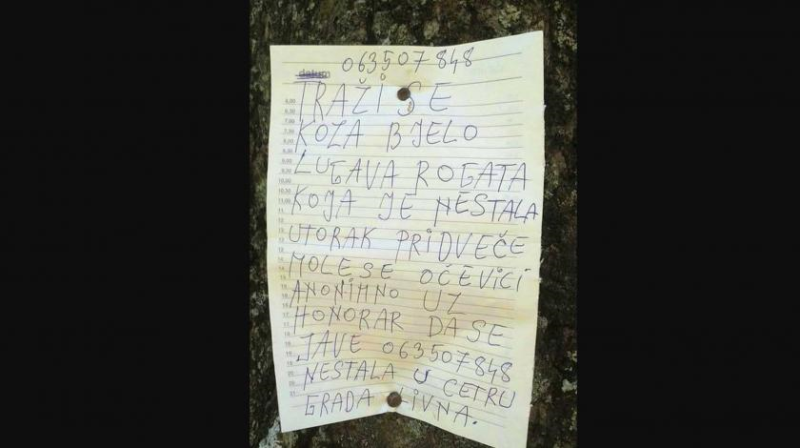 063507848
TRAŽI SE
KOZA BJELO
LUGAVA ROGATA
KOJA JE NESTALA
UTORAK PRIDVEČE
MOLE SE OČEVICI
ANONIMNO UZ
HONORAR DA SE
JAVE 063507848
NESTALA U CETRU
GRADA LIVNA.